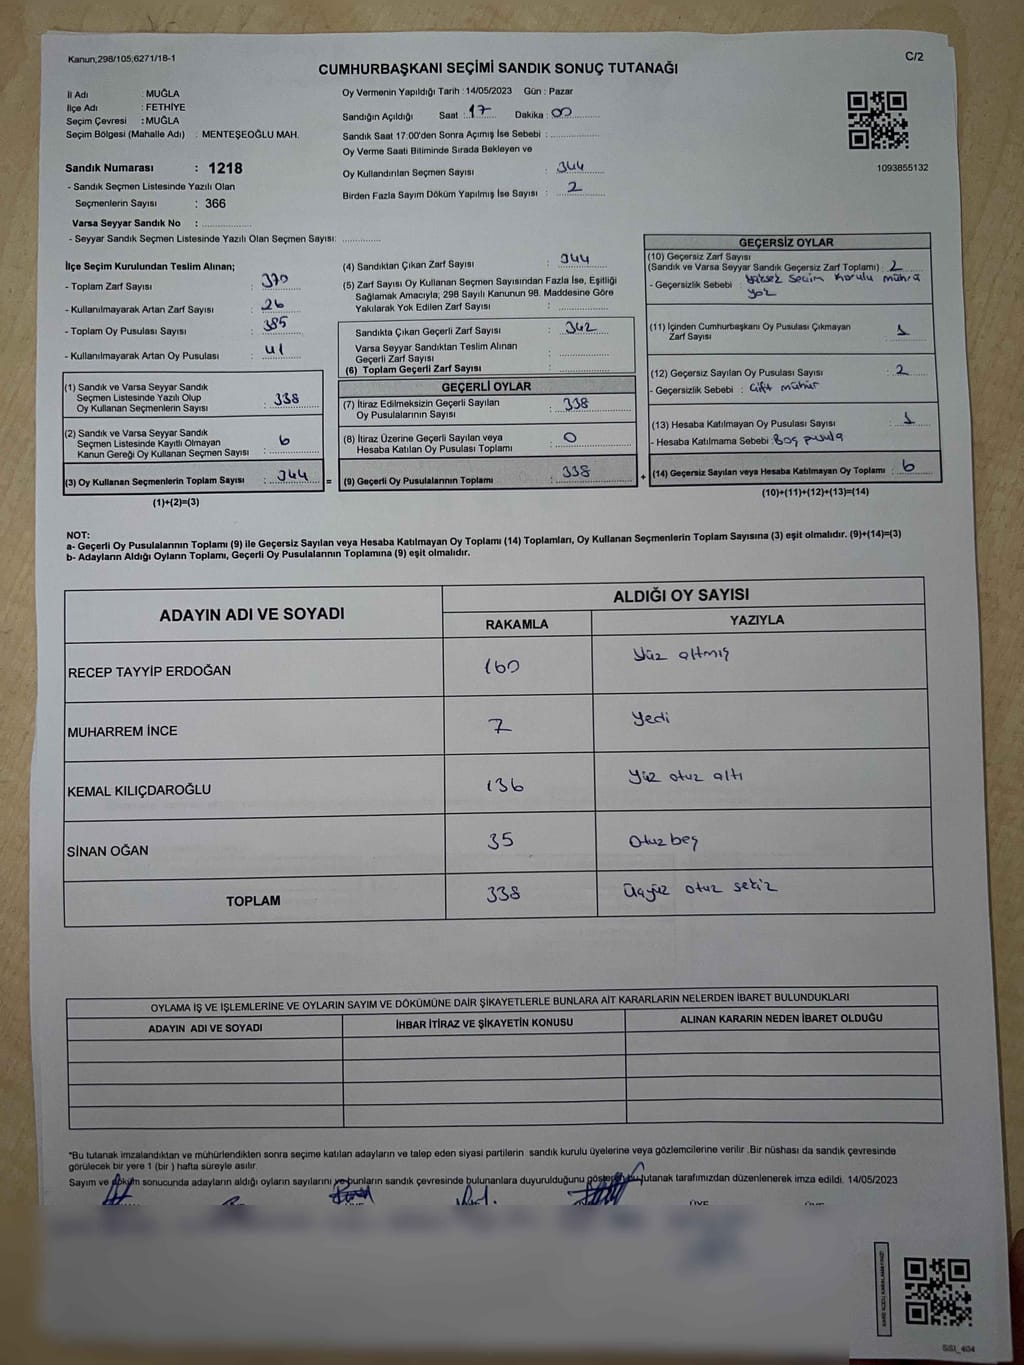 Kanun;298/105;6271/18-1
C/2
CUMHURBAŞKANI SEÇİMİ SANDIK SONUÇ TUTANAĞI
İl Adı : MUĞLA
İlçe Adı : FETHİYE
Seçim Çevresi : MUĞLA
Seçim Bölgesi (Mahalle Adı) : MENTEŞEOĞLU MAH.
Oy Vermenin Yapıldığı Tarih : 14/05/2023 Gün : Pazar
Sandığın Açıldığı Saat : 17 Dakika : 00
Sandık Saat 17:00'den Sonra Açımış İse Sebebi :
Oy Verme Saati Bitiminde Sırada Bekleyen ve
Oy Kullandırılan Seçmen Sayısı : 344
Birden Fazla Sayım Döküm Yapılmış İse Sayısı : 2
1093855132
Sandık Numarası : 1218
- Sandık Seçmen Listesinde Yazılı Olan
Seçmenlerin Sayısı : 366
Varsa Seyyar Sandık No :
- Seyyar Sandık Seçmen Listesinde Yazılı Olan Seçmen Sayısı:
İlçe Seçim Kurulundan Teslim Alınan;
- Toplam Zarf Sayısı : 370
- Kullanılmayarak Artan Zarf Sayısı : 26
- Toplam Oy Pusulası Sayısı : 385
- Kullanılmayarak Artan Oy Pusulası : 41
(1) Sandık ve Varsa Seyyar Sandık
Seçmen Listesinde Yazılı Olup
Oy Kullanan Seçmenlerin Sayısı : 338
(2) Sandık ve Varsa Seyyar Sandık
Seçmen Listesinde Kayıtlı Olmayan
Kanun Gereği Oy Kullanan Seçmen Sayısı : 6
(3) Oy Kullanan Seçmenlerin Toplam Sayısı : 344
=
(1)+(2)=(3)
(4) Sandıktan Çıkan Zarf Sayısı : 344
(5) Zarf Sayısı Oy Kullanan Seçmen Sayısından Fazla İse, Eşitliği
Sağlamak Amacıyla; 298 Sayılı Kanunun 98. Maddesine Göre
Yakılarak Yok Edilen Zarf Sayısı :
Sandıkta Çıkan Geçerli Zarf Sayısı : 342
Varsa Seyyar Sandıktan Teslim Alınan
Geçerli Zarf Sayısı :
(6) Toplam Geçerli Zarf Sayısı :
GEÇERLİ OYLAR
(7) İtiraz Edilmeksizin Geçerli Sayılan
Oy Pusulalarının Sayısı : 338
(8) İtiraz Üzerine Geçerli Sayılan veya
Hesaba Katılan Oy Pusulası Toplamı : 0
(9) Geçerli Oy Pusulalarının Toplamı : 338
+
GEÇERSİZ OYLAR
(10) Geçersiz Zarf Sayısı
(Sandık ve Varsa Seyyar Sandık Geçersiz Zarf Toplamı) : 2
- Geçersizlik Sebebi : Yüksek Seçim Kurulu mührü
yok
(11) İçinden Cumhurbaşkanı Oy Pusulası Çıkmayan
Zarf Sayısı : 1
(12) Geçersiz Sayılan Oy Pusulası Sayısı : 2
- Geçersizlik Sebebi : Çift mühür
(13) Hesaba Katılmayan Oy Pusulası Sayısı : 1
- Hesaba Katılmama Sebebi : Boş pusula
(14) Geçersiz Sayılan veya Hesaba Katılmayan Oy Toplamı : 6
(10)+(11)+(12)+(13)=(14)
NOT:
a- Geçerli Oy Pusulalarının Toplamı (9) ile Geçersiz Sayılan veya Hesaba Katılmayan Oy Toplamı (14) Toplamları, Oy Kullanan Seçmenlerin Toplam Sayısına (3) eşit olmalıdır. (9)+(14)=(3)
b- Adayların Aldığı Oyların Toplamı, Geçerli Oy Pusulalarının Toplamına (9) eşit olmalıdır.
ADAYIN ADI VE SOYADI
ALDIĞI OY SAYISI
RAKAMLA YAZIYLA
RECEP TAYYİP ERDOĞAN 160 Yüz altmış
MUHARREM İNCE 7 Yedi
KEMAL KILIÇDAROĞLU 136 Yüz otuz altı
SİNAN OĞAN 35 Otuz beş
TOPLAM 338 Üçyüz otuz sekiz
OYLAMA İŞ VE İŞLEMLERİNE VE OYLARIN SAYIM VE DÖKÜMÜNE DAİR ŞİKAYETLERLE BUNLARA AİT KARARLARIN NELERDEN İBARET BULUNDUKLARI
ADAYIN ADI VE SOYADI İHBAR İTİRAZ VE ŞİKAYETİN KONUSU ALINAN KARARIN NEDEN İBARET OLDUĞU
*Bu tutanak imzalandıktan ve mühürlendikten sonra seçime katılan adayların ve talep eden siyasi partilerin sandık kurulu üyelerine veya gözlemcilerine verilir .Bir nüshası da sandık çevresinde
görülecek bir yere 1 (bir ) hafta süreyle asılır.
Sayım ve döküm sonucunda adayların aldığı oyların sayılarını ve bunların sandık çevresinde bulunanlara duyurulduğunu gösteren bu tutanak tarafımızdan düzenlenerek imza edildi. 14/05/2023
SSI_404